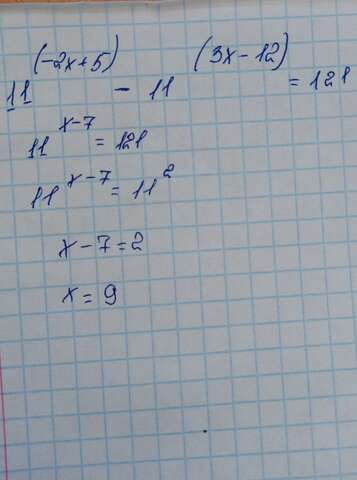 11^(-2x+5) - 11^(3x-12) = 121
11^x-7 = 121
11^x-7 = 11^2
x-7=2
x=9